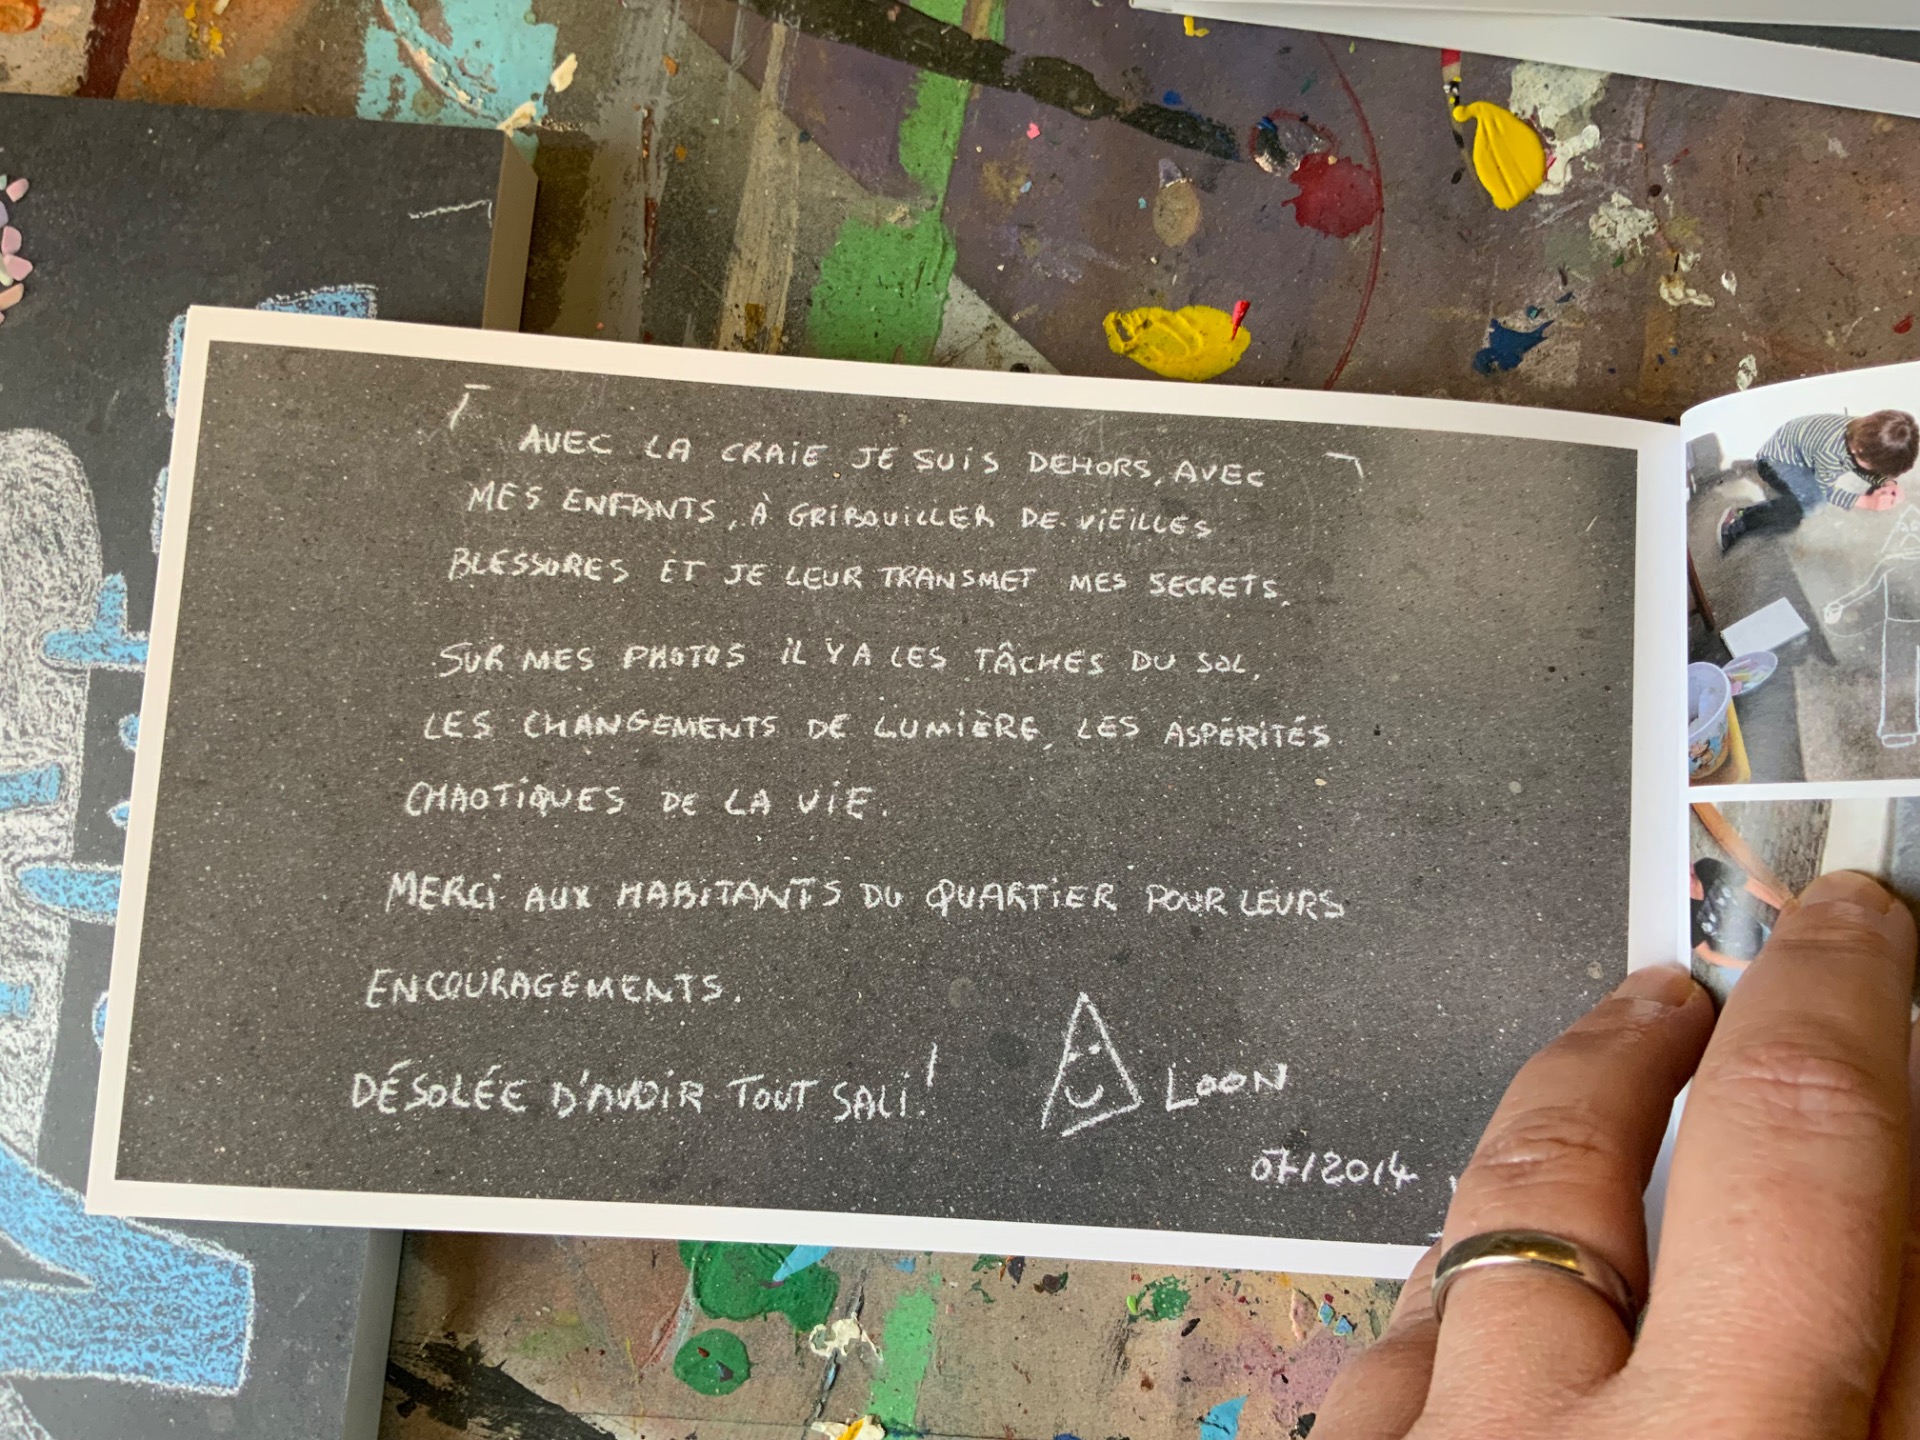 AVEC LA CRAIE JE SUIS DEHORS, AVEC
MES ENFANTS, À GRIBOUILLER DE VIEILLES
BLESSURES ET JE LEUR TRANSMET MES SECRETS.
SUR MES PHOTOS IL Y A LES TÂCHES DU SOL,
LES CHANGEMENTS DE LUMIÈRE, LES ASPÉRITÉS
CHAOTIQUES DE LA VIE.
MERCI AUX HABITANTS DU QUARTIER POUR LEURS
ENCOURAGEMENTS.
DÉSOLÉE D'AVOIR TOUT SALI!
LOON
07/2014